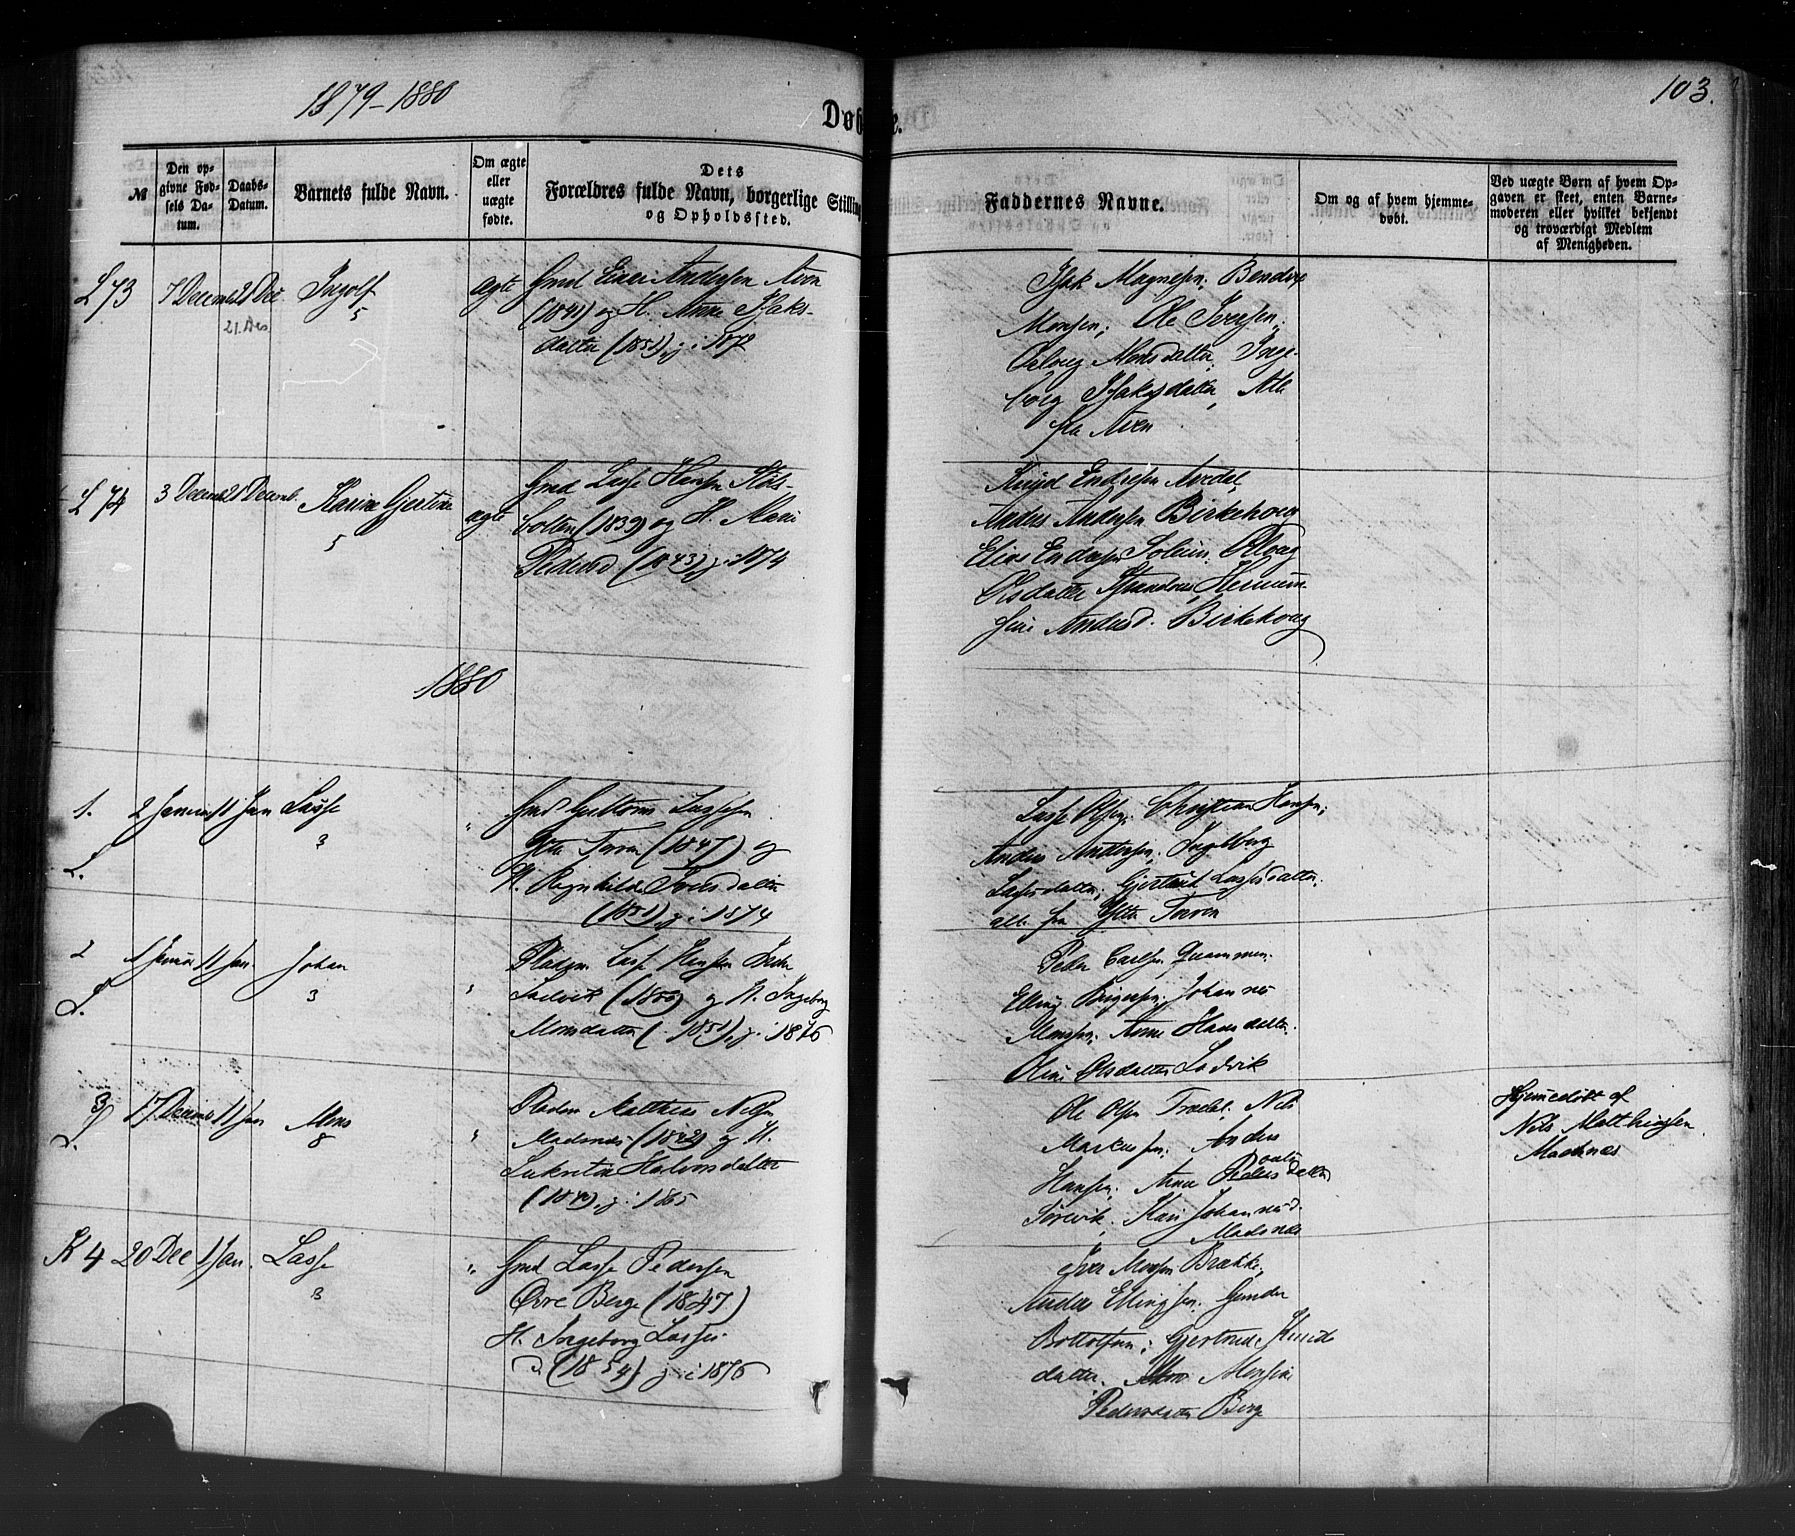 1879-1880
103.
Døbte.
№
Den opgivne Fødsels Datum.
Daabs-Datum.
Barnets fulde Navn.
Om ægte eller uægte fødte.
Dets Forældres fulde Navn, borgerlige Stilling og Opholdssted.
Faddernes Navne.
Om og af hvem hjemmedøbt.
Ved uægte Børn af hvem Opgaven er skeet, enten Barnemoderen eller hvilket bekjendt og troværdigt Medlem af Menigheden.
L 73
7 Decemb
21 Dec
21. Des
Ingolf
5
ægte
Gmd Einar Andersen Aven
(1841) og H. Anne Isaks-
datter (1851), g. i 1872
Isak Magnesen; Bendix
Monsen; Ole Iversen;
Oaloug Monsdatter; Inge-
borg Isaksdatter, Alle
fra Aven
L 74
3 Decemb
21 Decemb.
Karine Gjertine
5
ægte
Gmd Lasse Hansen Støls-
botten (1839) og H. Marie
Pedersd (1843), g. i 1874
Knud Endresen Averdal,
Anders Andersen Birkehoug
Elias Endresen Soleim. Oloug
Olsdatter Strandnes, Hermin-
sine Andersd. Birkehoug
1880
1.
L.
2 Januar
11 Jan
Lasse
3
"
Gmd Guttorm Lassesen
Ytre Torven (1847) og
H. Regnhilde Iversdatter
(1851) g. i 1874
Lasse Olsen; Christian Hansen;
Anders Andersen; Ingeborg
Lassesdatter; Gjertrud Lassesdatter;
alle fra Ytre Torven
2
L.
1 Januar
11 Jan.
Johan
3
"
Pladsm. Lasse Hansen Indre
Ladvik (1850) og H. Ingeborg
Monsdatter (1851), g. i 1876
Peder Carlsen Quammen.
Elling Birgersen; Johannes
Monsen; Anne Hansdatter.
Oline Olsdatter Ladvik
3
L.
17 Decemb
11 Jan
Mons
8
"
Pladsm Matthias Nilsen
Madsnæs (1842) og H.
Lukretia Halvorsdatter
(1840), g. i 1865
Ole Olsen Trædal. Nils
Markussen; Anders
Hansen; Anna Pedersdatter
Torevik. Kari Johannesd.
Madsnæs
Hjemmedøbt af
Nils Matthiasen
Madsnæs
K 4
20 Dec
1 Jan.
Lasse
3
"
Gmd Lasse Pedersen
Øvre Berge (1847)
H. Ingeborg Lasses-
d. (1854) g. i 1876
Iver Monsen Brække,
Anders Ellingsen. Gunder
Bottolfsen; Gjertrude Knuds
datter. Monsine
Pedersdatter Berge